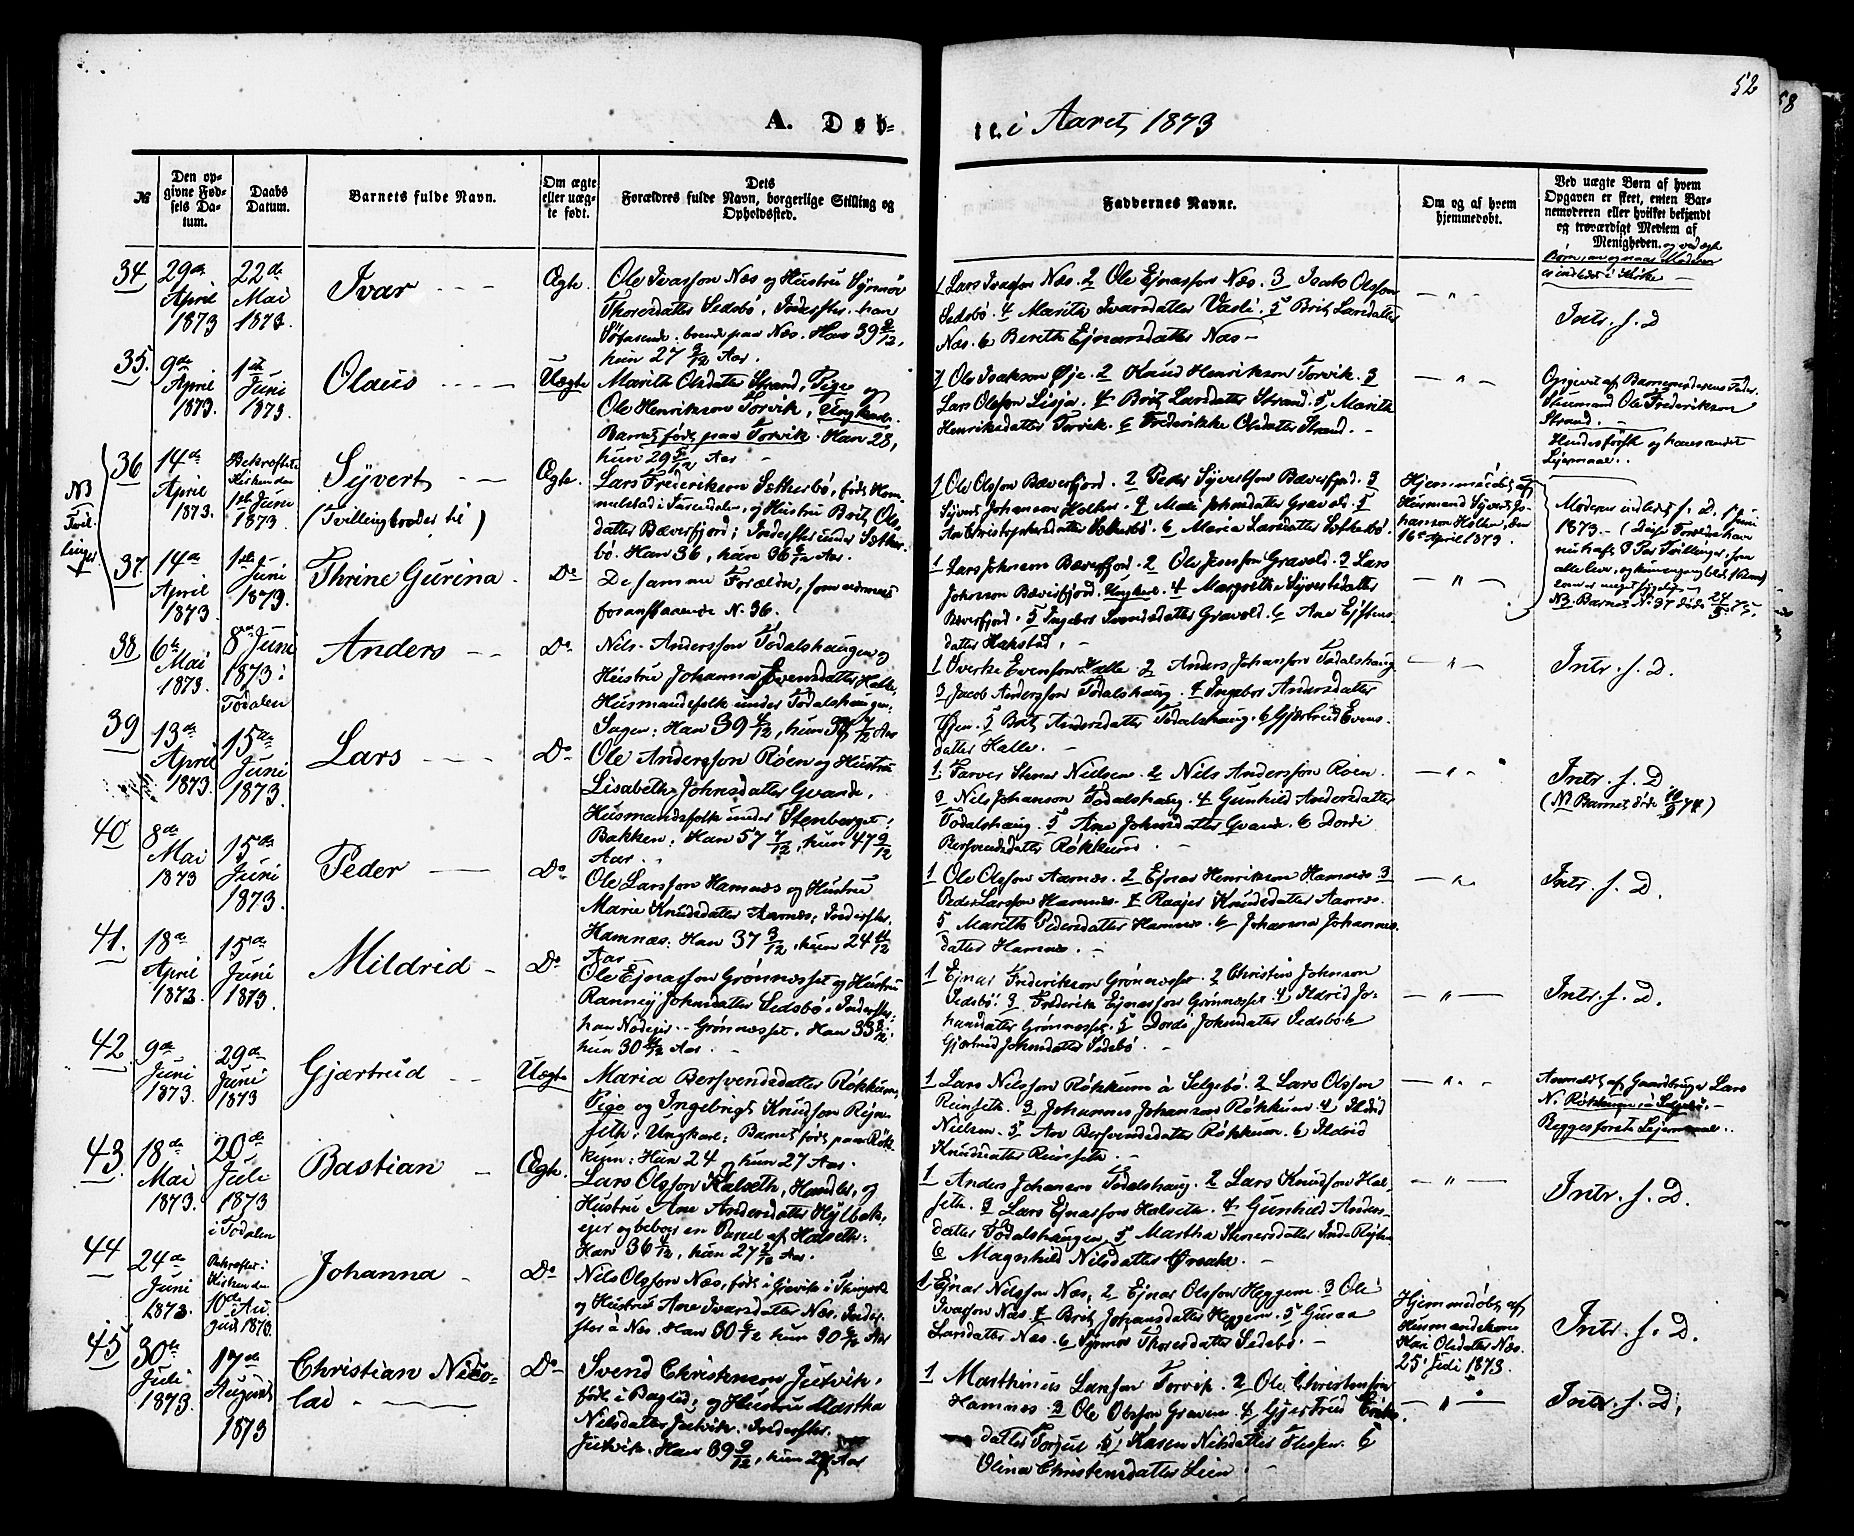 52
A. Døb-
te i Aaret 1873
№
Den op-
givne Fød-
sels Da-
tum.
Daabs
Datum.
Barnets fulde Navn.
Om ægte
eller uæg-
te født.
Dets
Forældres fulde Navn, borgerlige Stilling og
Opholdssted.
Faddernes Navne.
Om og af hvem
hjemmedøbt.
Ved uægte Børn af hvem
Opgaven er skeet, enten Bar-
nemoderen eller hvilket bekjendt
og troværdigt Medlem af
Menigheden. og ved ægte
Børn, om og naar Moderen
er indledt i Kirke —
34
29de
April
1873
22de
Mai
1873.
Ivar
Ægte.
Ole Ivarsson Næs og Hustru Synnøv
Thoresdatter Sedsbø, Inderster. han
boende paa Næs. Han 39
hun 27 Aar.
1 Lars Ivarson Næs. 2 Ole Ejnarsson Næs. 3 Isak Olsson
Sedsbø. 4 Marith Ivarsdatter Vasli. 5 Brit Larsdatter
Næs. 6 Berith Ejnarsdatter Næs —
— " —
Intr. s. D
35.
9de
April
1873.
1ste
Juni
1873.
Olaus
Uægte
Marith Olsdatter Strand, Pige og
Ole Henrikson Torvik, Ungkarl.
Barnet født paa Torvik. Han 28,
hun 29 Aar
1 Ole Isakson Øje. 2 Knud Henrikson Torvik. 3
Lars Olsson Lisjø. 4 Brit Larsdatter Strand. 5 Marith
Henriksdatter Torvik. 6 Frederikke Olsdatter Strand. —
— " —
Opgivet af Barnemoderens Fader
Huusmand Ole Frederikson
Strand. —
Hendes første og hans andet
Lejermaal.
NB
Tvil-
linger
36
14de
April
1873.
Bekræftet i
Kirken den
1ste Juni
1873.
Syvert
(Tvillingbroder til )
Ægte.
Lars Frederikson Sætherbø, født Hem-
melstad i Surendalen, og Hustru Brit Ols-
datter Bæverfjord; Inderster under Sæther-
bø. Han 36, hun 36 Aar.
1 Ole Olsson Bæverfjord. 2 Peder Syvertson Bæverfjord. 3
Syvert Johanson Holten. 4 Mari Johnsdatter Gravold. 5
Ane Christophersdatter Sætherbø. 6 Maria Larsdatter Sætherbø.
Hjemmedøbt af
Huusmand Syvert Jo-
hanson Holten, den
16de April 1873.
Moderen indledt s. D. 1 Juni
1873. — (Disse Forældre have
nu havt 3 Par Tvillinger, som
alle leve, og kun engang blot 1 Barn)
NB. Barnet No 37 døde
37
14de
April
1873.
1ste
Juni
1873.
Thrine Gurina.
Do
De samme Forældre, som nævnes
foranstaaende No. 36.
1 Lars Johnson Bæverfjord. 2 Ole Jensson Gravold. 3 Lars
Johnson Bæverfjord. Ungkarl. 4 Margrethe Syvertsdatter
Bæverfjord. 5 Ingebor Svendsdatter Gravold. 6 Ane
datter Hakstad.
— " —
38
6te
Mai
1873.
8de Juni
1873:
Todalen
Anders
Do
Nils Andersson Todalshaugen og
Hustru Johanna Evensdatter Halle,
Husmandsfolk under Todalshaugen:
Sagen: Han 39 4/12, hun 37 7/12 Aar
1 Sverke Evenson Halle. 2 Anders Johanson Todalshaug
3 Jacob Andersson Todalshaug. 4 Ingebor Andersdatter
Øjen. 5 Brit Andersdatter Todalshaug. 6 Gjertrud Evens-
datter Halle. —
— " —
Intr. s. D.
39
13de
April
1873
15de
Juni
1873.
Lars
Do
Ole Andersson Røen og Hustru
Lisabeth Johnsdatter Gvande.
Husmandsfolk under Stenberget:
Bakken; Han 57 7/12, hun 47 9/12
Aar.
1. Farver Stener Nielsen. 2 Nils Andersson Roen.
3 Nils Johanson Todalshaug. 4 Gunhild Andersdatter
Todalshaug. 5 Ane Johnsdatter Gvande. 6 Dordi
Bersvendsdatter Røkkum. —
— " —
Intr. s. D
(NB Barnet døde 74)
40
8de
Mai
1873
15de
Juni
1873.
Peder
Do
Ole Larsson Hamnes og Hustru
Marie Knudsdatter Aarnes; Inderster.
Hamnæs. Han 37 3/12, hun 24 11/12
Aar
1 Ole Olsson Aarnes. 2 Ejnar Henrikson Hamnes 3
Peder Larsson Hamnes. 4 Raajer Knudsdatter Aarnes.
5 Marith Pedersdatter Hamnes. 6 Johanna Johannes-
datter Hamnes. —
— " —
Intr. s. D.
41.
18de
April
1873.
15de
Juni
1873.
Mildrid
Do
Ole Ejnarsson Grønnesset og Hustru
Rannej Johnsdatter Sedsbø. Inderster;
Grønnesset. Han 33
hun 30 Aar. —
1 Ejnar Frederikson Grønnesset. 2 Christen Johnson
Sedsbø. 3 Frederik Ejnarsson Grønnesset. 4 Ildrid Jo-
hansdatter Grønnesset. 5 Dordi Johnsdatter Sedsbø. 6
Gjertrud Johnsdatter Sedsbø. —
— " —
Intr. s. D.
42.
9de
Juni
1873.
29de
Juni
1873
Gjærtrud
Uægte
Maria Bersvendsdatter Røkkum,
Pige og Ingebrigt Knudson Rejn-
seth, Ungkarl: Barnet født paa Røk-
kum: Han 24 og hun 27 Aar.
1 Lars Nilsson Røkkum à Selgebø. 2 Lars Olsson
Reinseth. 3 Johannes Johanson Røkkum. 4 Ildrid
Nielsen. 5 Ane Bersvendsdatter Røkkum. 6 Ildrid
Knudsdatter Reinseth. —
— " —
Anmeldt af Gaardbruger Lars
N. Røkkum à Selgebø. —
Begges første Lejermaal.
43.
18de
Mai
1873.
20de
Juli
1873
i Todalen
Bastian
Ægte.
Lars Olsson Halseth, Handler, og
Hustru Ane Andersdatter Hylbak,
ejer og beboer en Parcel af Halseth:
Han 36 4/12, hun 27 2/12 Aar.
1 Anders Johanson Todalshaug. 2 Lars Knudson Hal-
seth. 3 Lars Ejnarson Halseth. 4 Gunhild Anders-
datter Todalshaugen. 5 Martha Stenersdatter
6 Magnhild Nilsdatter —
— " —
Intr. s. D.
44
24de
Juni
1873.
Bekræftet i
Kirken den
10de Au-
gust 1873.
Johanna
Do
Nils Olsson Næs, født i
og Hustru Ane Ivarsdatter Næs. Inder-
ster à Næs. Han 30 hun 30 Aar
1 Ejnar Nilsson Næs. 2 Ejnar Olsson Heggem. 3 Ole
Ivarson Næs. 4 Brit Johansdatter Heggem. 5 Guraa
Larsdatter Næs. 6 Synnøv Thoresdatter Sedsbø. —
Hjemmedøbt af
Husmandskone
Mari Olsdatter Næs.
25 Juli 1873.
Intr. s. D.
45
30te
Juli
1873.
17de
August
1873
Christian Nico-
lai
Do
Svend Christenson Jutvik,
født i Bøglid; og Hustru Martha
Nilsdatter Jutvik. Inderster.
Jutvik. Han 39 9/12, hun 29 Aar
1 Marthinus Larsson Torvik. 2 Ole Christenson
Hamnes. 3 Ole Olsson Graven. 4 Gjertrud
datter Torjul. 5 Karen Nilsdatter 6
Olina Christensdatter Lien. —
— " —
Intr. s. D.